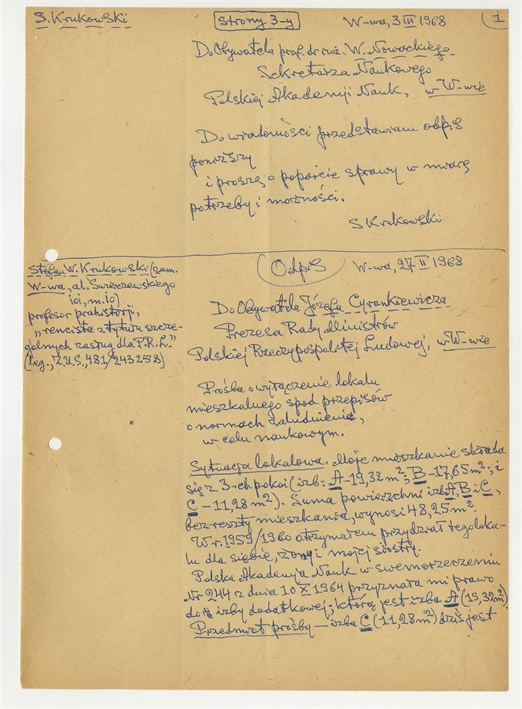 S. Krukowski
Strony 3-y
W-wa, 3 III 1968
1
Do Obywatela prof. dr inż. W. Nowackiego
Sekretarza Naukowego
Polskiej Akademji Nauk, w W-wie
Do wiadomości przedstawiam odpis
poniższy
i proszę o poparcie sprawy w miarę
potrzeby i możności.
S Krukowski
Odpis
W-wa, 27 II 1968
Stefan W. Krukowski (zam.
W-wa, al. Świerczewskiego
101, m. 10)
profesor prahistorji,
"rencista z tytułu szcze-
gólnych zasług dla P.R.L."
(leg. Z.U.S. 481/243258)
Do Obywatela Józefa Cyrankiewicza
Prezesa Rady Ministrów
Polskiej Rzeczypospolitej Ludowej, w W-wie
Prośba o wyłączenie lokalu
mieszkalnego spod przepisów
o normach zaludnienia,
w celu naukowym.
Sytuacja lokalowa. Moje mieszkanie składa
się z 3-ch pokoi (izb: A-19,32 m²; B-17,65 m²; i
C-11,28 m²). Suma powierzchni izb A, B i C,
bez reszty mieszkania, wynosi 48,25 m²
W r. 1959/1960 otrzymałem przydział tego loka-
lu dla siebie, żony i mojej siostry.
Polska Akademja Nauk w swem orzeczeniu
Nr 244 z dnia 10 X 1964 przyznała mi prawo
do izby dodatkowej; którą jest izba A (19,32 m²)
Przedmiot prośby - izba C (11,28 m²) dziś jest